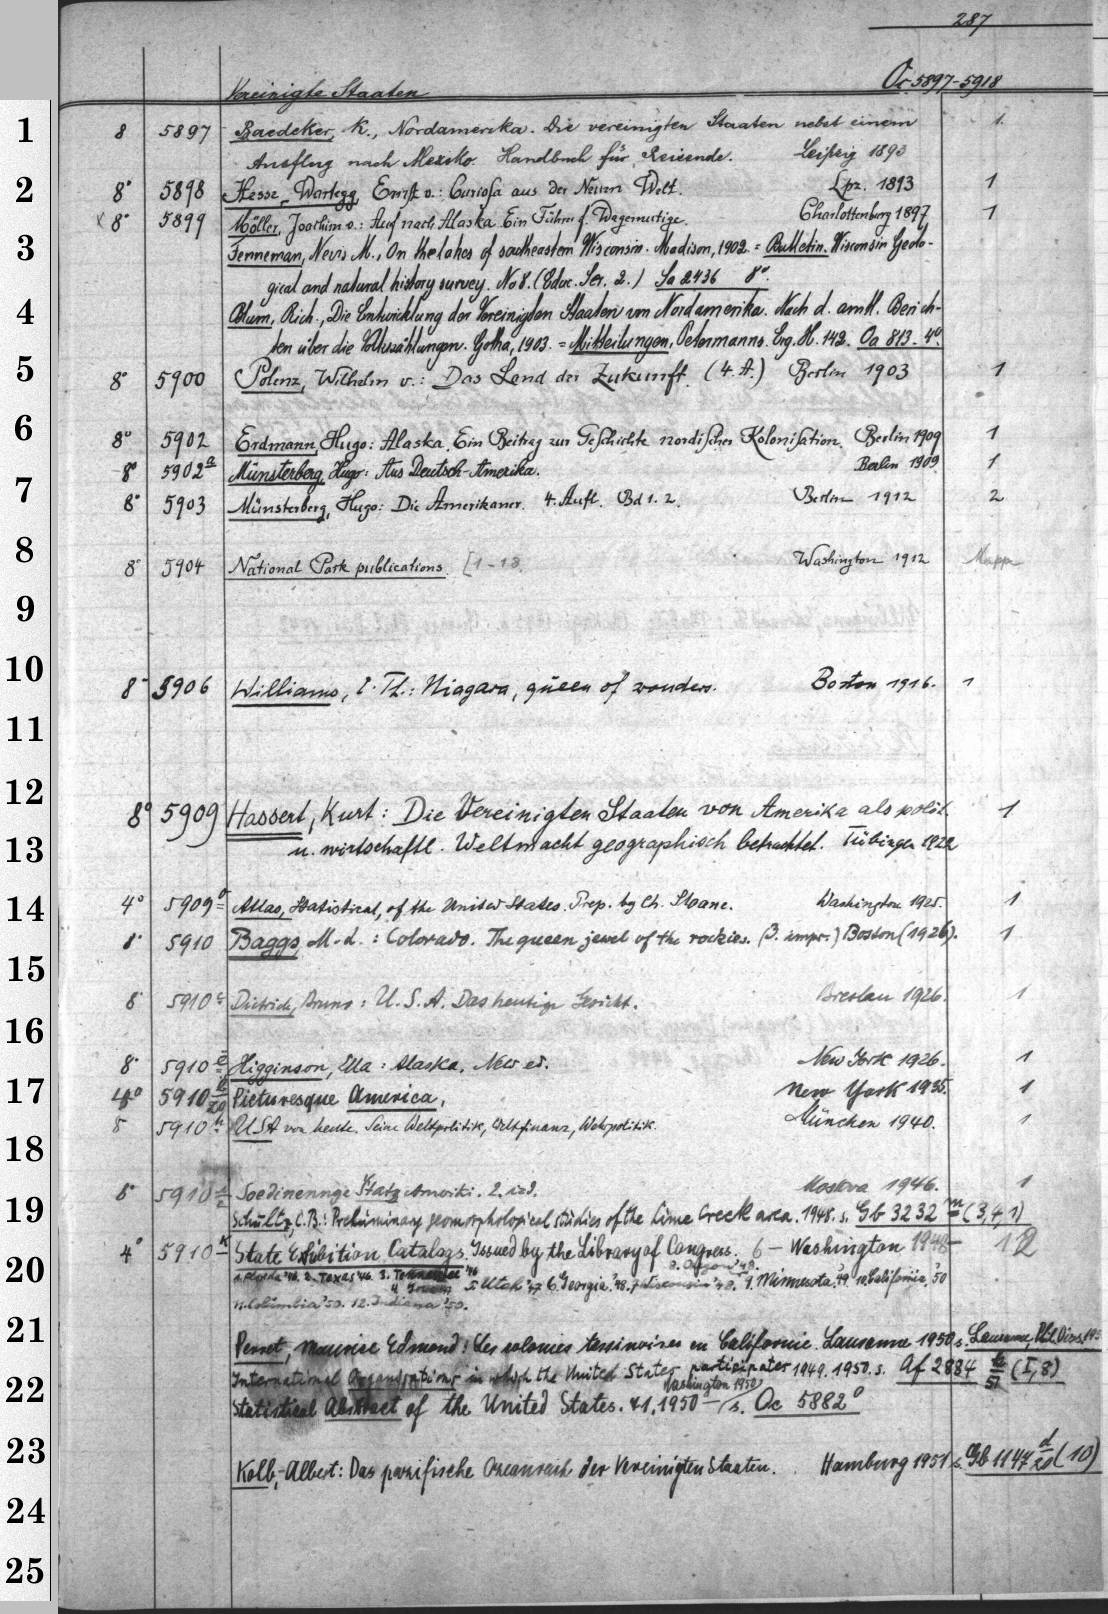 287
Vereinigte Staaten Oc 5897-5918
1 8 5897 Baedeker, K., Nordamerika. Die vereinigten Staaten nebst einem 1.
Ausflug nach Mexiko. Handbuch für Reisende. Leipzig 1893
2 8° 5898 Hesse-Wartegg, Ernst v.: Curiosa aus der Neuen Welt. Lpz. 1893 1
x 8° 5899 Möller, Joachim v.: Auf nach Alaska. Ein Führer f. Wagemutige. Charlottenburg 1897 1
3 Fenneman, Nevis M., On the lakes of southeastern Wisconsin. Madison, 1902. = Bulletin. Wisconsin Geolo-
gical and natural history survey. No 8. (Educ. Ser. 2.) Sa 2436 8°.
4 Blum, Rich., Die Entwicklung der Vereinigten Staaten von Nordamerika. Nach d. amtl. Berich-
ten über die Volkszählungen. Gotha, 1903. = Mitteilungen, Petermanns. Erg. H. 142. Oa 813. 4°.
5 8° 5900 Polenz, Wilhelm v.: Das Land der Zukunft. (4. A.) Berlin 1903 1
6 8° 5902 Erdmann, Hugo: Alaska. Ein Beitrag zur Geschichte nordischer Kolonisation. Berlin 1909 1
8° 5902a Münsterberg, Hugo: Aus Deutsch-Amerika. Berlin 1909. 1
7 8° 5903 Münsterberg, Hugo: Die Amerikaner. 4. Aufl. Bd 1. 2. Berlin 1912 2
8 8° 5904 National Park publications. [1-13. Washington 1912 Mappe
9
10 8° 5906 Williams, Th.: Niagara, queen of wonders. Boston 1916. 1
11
12 8° 5909 Hassert, Kurt: Die Vereinigten Staaten von Amerika als polit. 1
13 u. wirtschaftl. Weltmacht geographisch betrachtet. Tübingen 1922
14 4° 5909 Atlas, Statistical, of the United States. Prep. by Ch. Sloane. Washington 1925. 1
8° 5910 Baggs, M. L.: Colorado. The queen jewel of the rockies. (3. impr.) Boston (1926). 1
15 8° 5910c Dietrich, Bruno: U.S.A. Das heutige Gesicht. Breslau 1926. 1
16 8° 5910e Higginson, Ella: Alaska. New ed. New York 1926. 1
17 4° 5910 Picturesque America. New York 1935. 1
8 5910h USA von heute. Seine Weltpolitik, Weltfinanz, Wehrpolitik. München 1940. 1
18 8° 5910 Soedinennye Staty Ameriki. 2. izd. Moskva 1946. 1
19 Schultz, C.B.: Preliminary geomorphological studies of the Lime Creek area. 1948. s. Gb 3232 m (3,4,1)
4° 5910k State Exhibition Catalogs. Issued by the Library of Congress. 6 - Washington 1948- 12
20 1. Florida '46. 2. Texas '46. 3. Tennessee '46 5. Utah '47 6. Georgia. '48. 7. Wisconsin '48. 8. Oregon '48. 9. Minnesota. '49. 10. California. '50
11. Columbia '50. 12. Indiana '50.
21 Perret, Maurice Edmond: Les colonies tessinoises en Californie. Lausanne 1950. s. Lausanne, Phil. Diss.
International Organisations in which the United States participates 1949. 1950. s. Af 2884 (I, 8)
22 Statistical Abstract of the United States. 71, 1950- Washington 1950 s. Oc 5882°
23 Kolb, Albert: Das pazifische Ozeanreich der Vereinigten Staaten. Hamburg 1951 s. Gb 1147 d 20 (10)
24
25